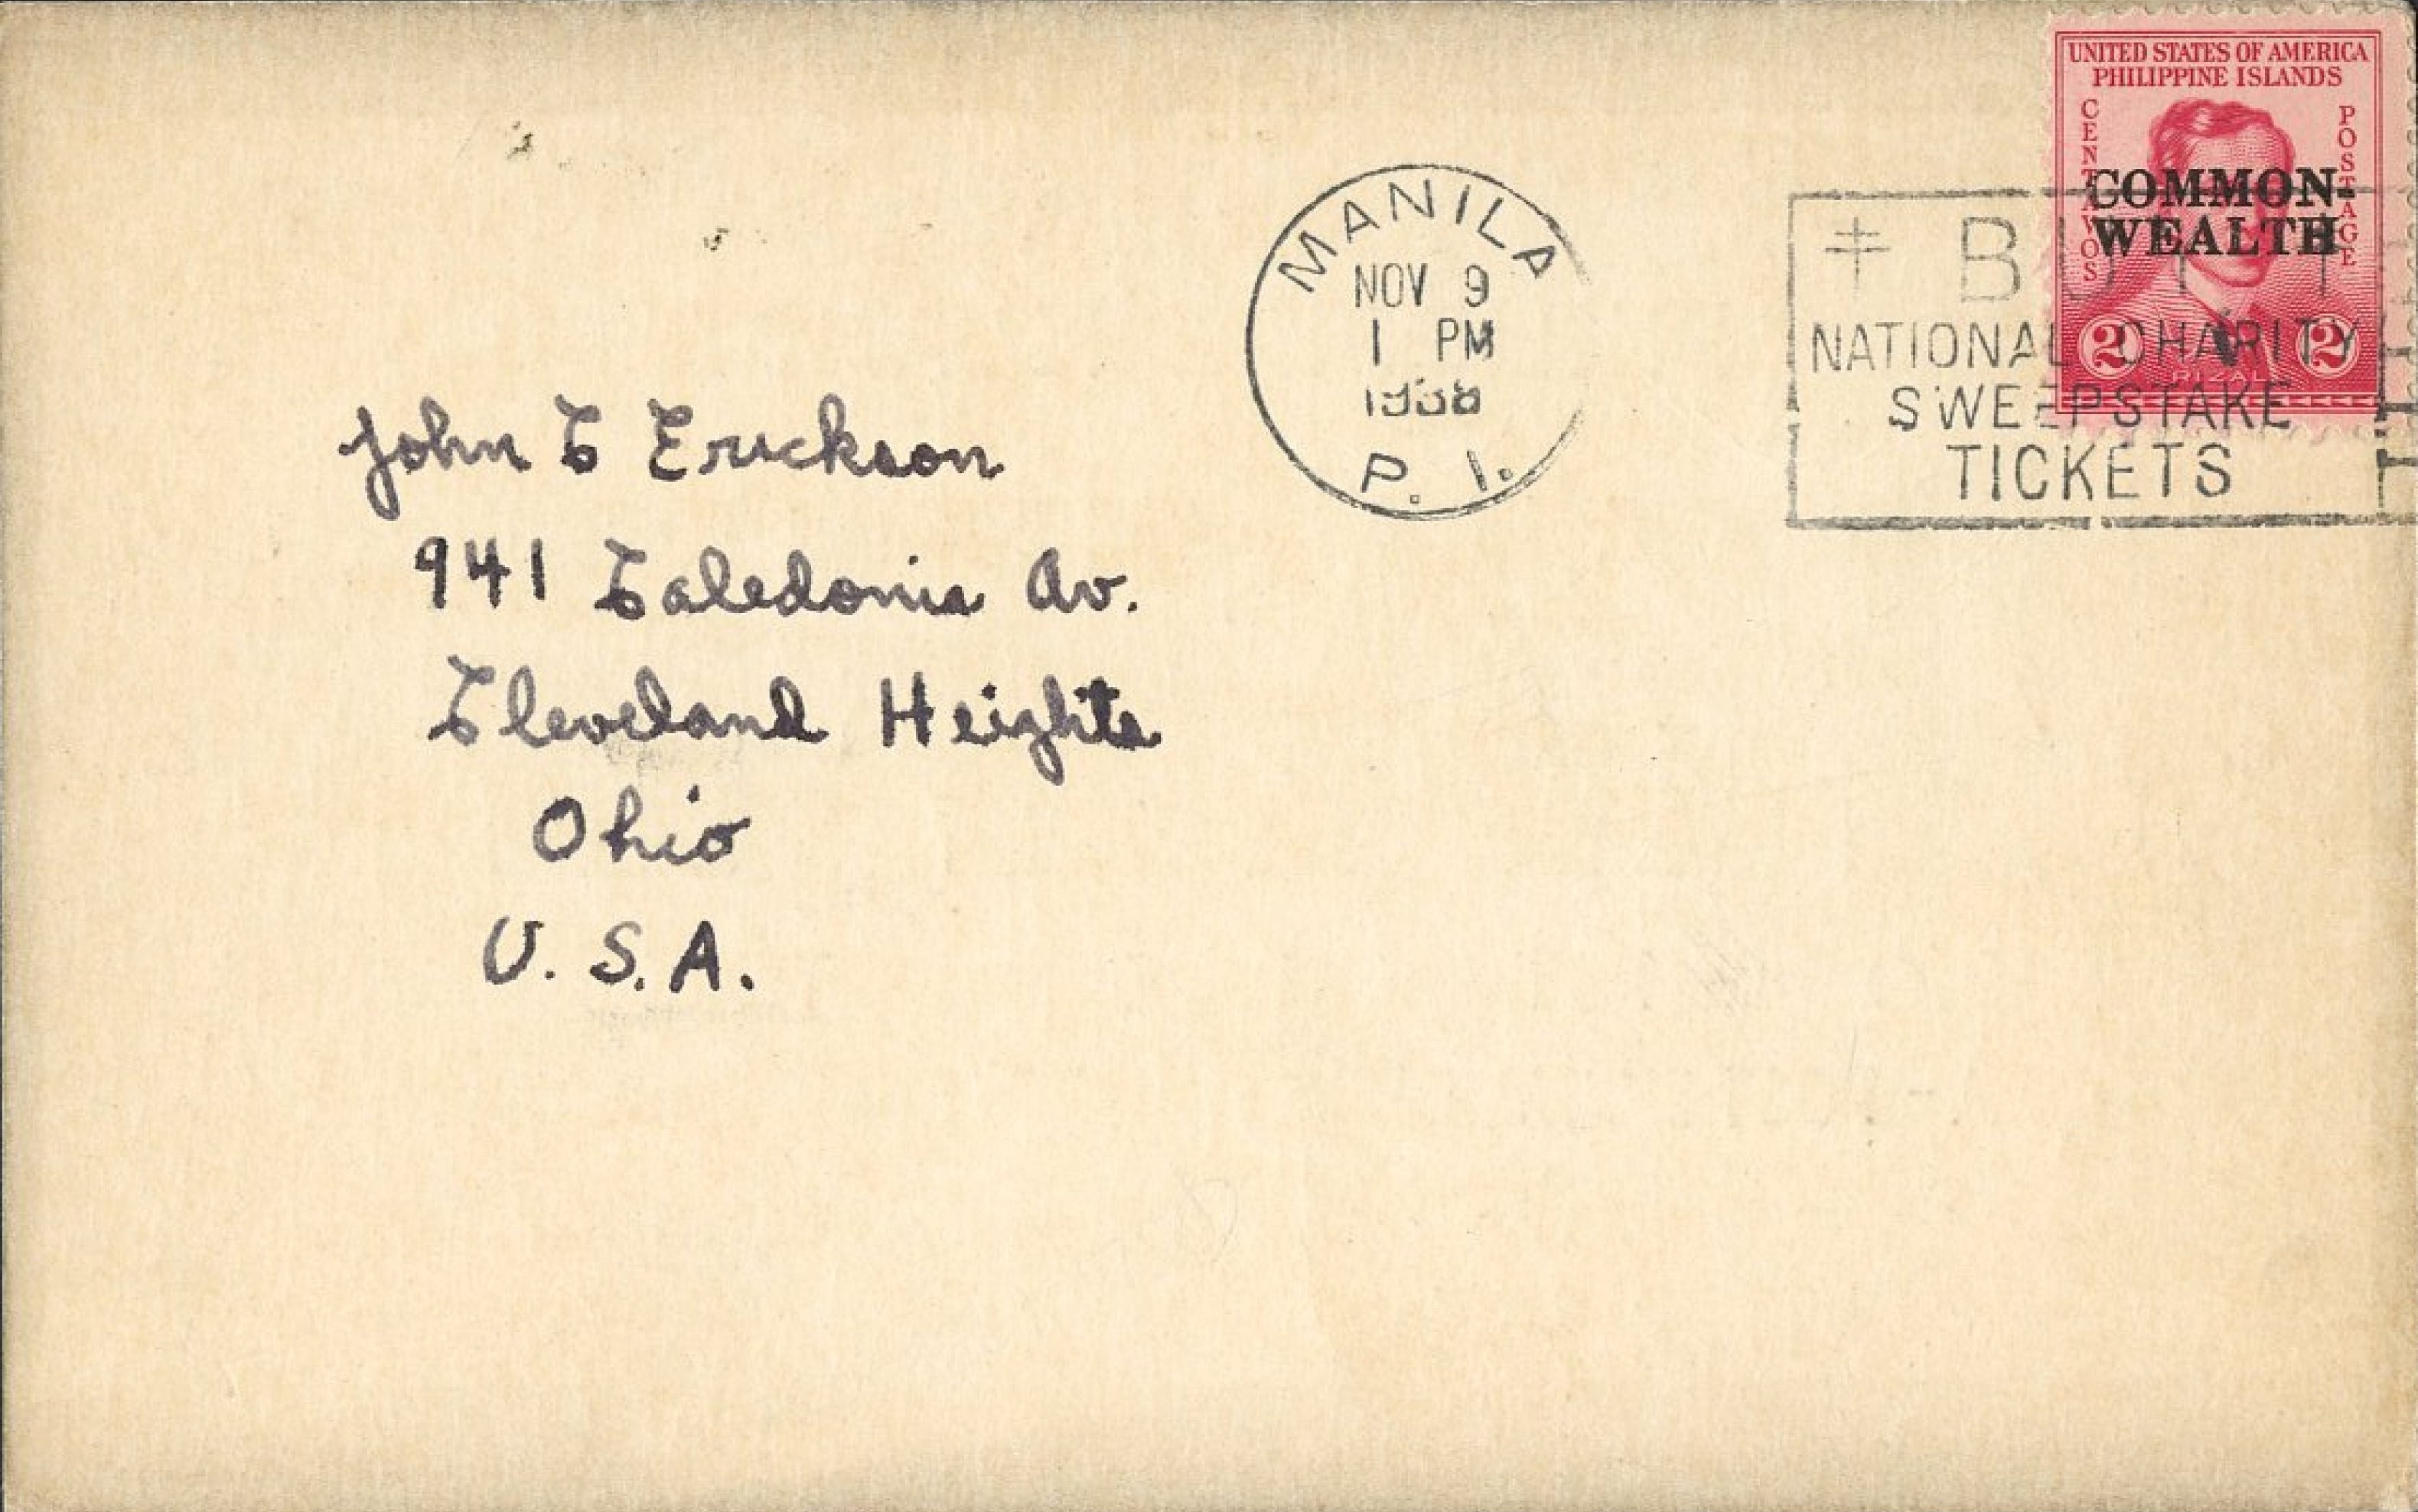 UNITED STATES OF AMERICA
PHILIPPINE ISLANDS
CENTAVOS
POSTAGE
COMMON-
WEALTH
2 2
RIZAL
MANILA
NOV 9
1 PM
1938
P. I.
BUY
NATIONAL CHARITY
SWEEPSTAKE
TICKETS
John C Erickson
941 Caledonia Av.
Cleveland Heights
Ohio
U. S. A.